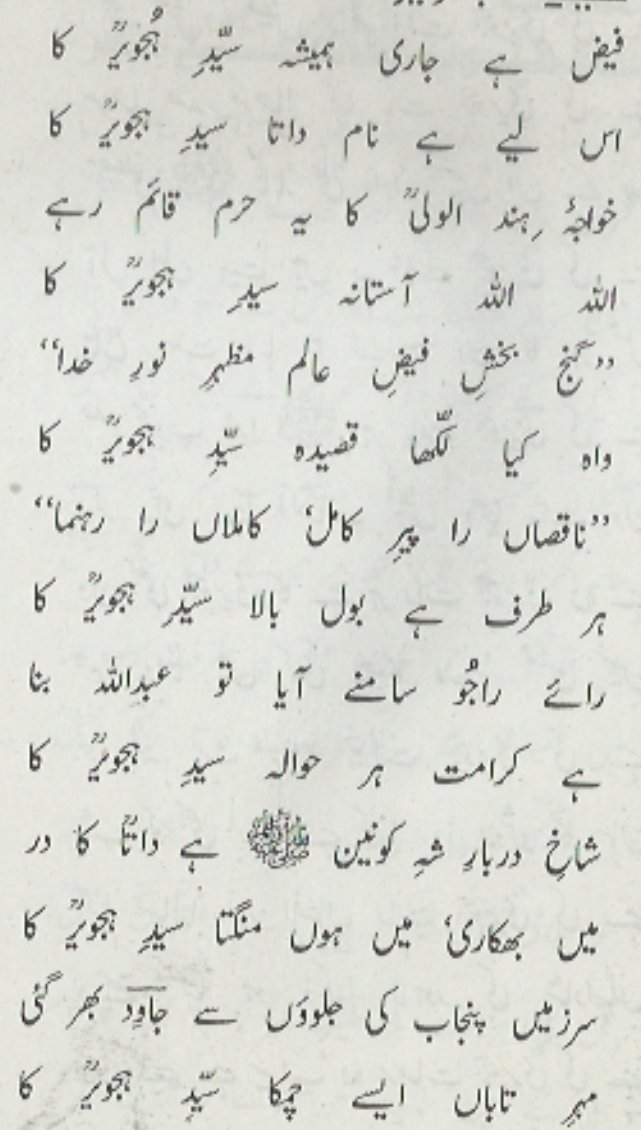 فیض ہے جاری ہمیشہ سیّدِ ہُجویرؒ کا
اس لیے ہے نام داتا سیدِ ہجویرؒ کا
خواجۂ ہِند الولیؒ کا یہ حرم قائم رہے
اللہ اللہ آستانہ سیدِ ہجویرؒ کا
”گنج بخشِ فیضِ عالم مظہرِ نورِ خدا“
واہ کیا لکّھا قصیدہ سیّدِ ہجویرؒ کا
”ناقصاں را پیرِ کامل‘ کاملاں را رہنما“
ہر طرف ہے بول بالا سیّدِ ہجویرؒ کا
رائے راجُو سامنے آیا تو عبداللہ بنا
ہے کرامت ہر حوالہ سیدِ ہجویرؒ کا
شاخِ دربارِ شہِ کونین ﷺ ہے داتاؒ کا در
میں بھکاری‘ میں ہوں منگتا سیدِ ہجویرؒ کا
سرزمیں پنجاب کی جلووَں سے جاوِدؔ بھر گئی
مہرِ تاباں ایسے چمکا سیّدِ ہجویرؒ کا